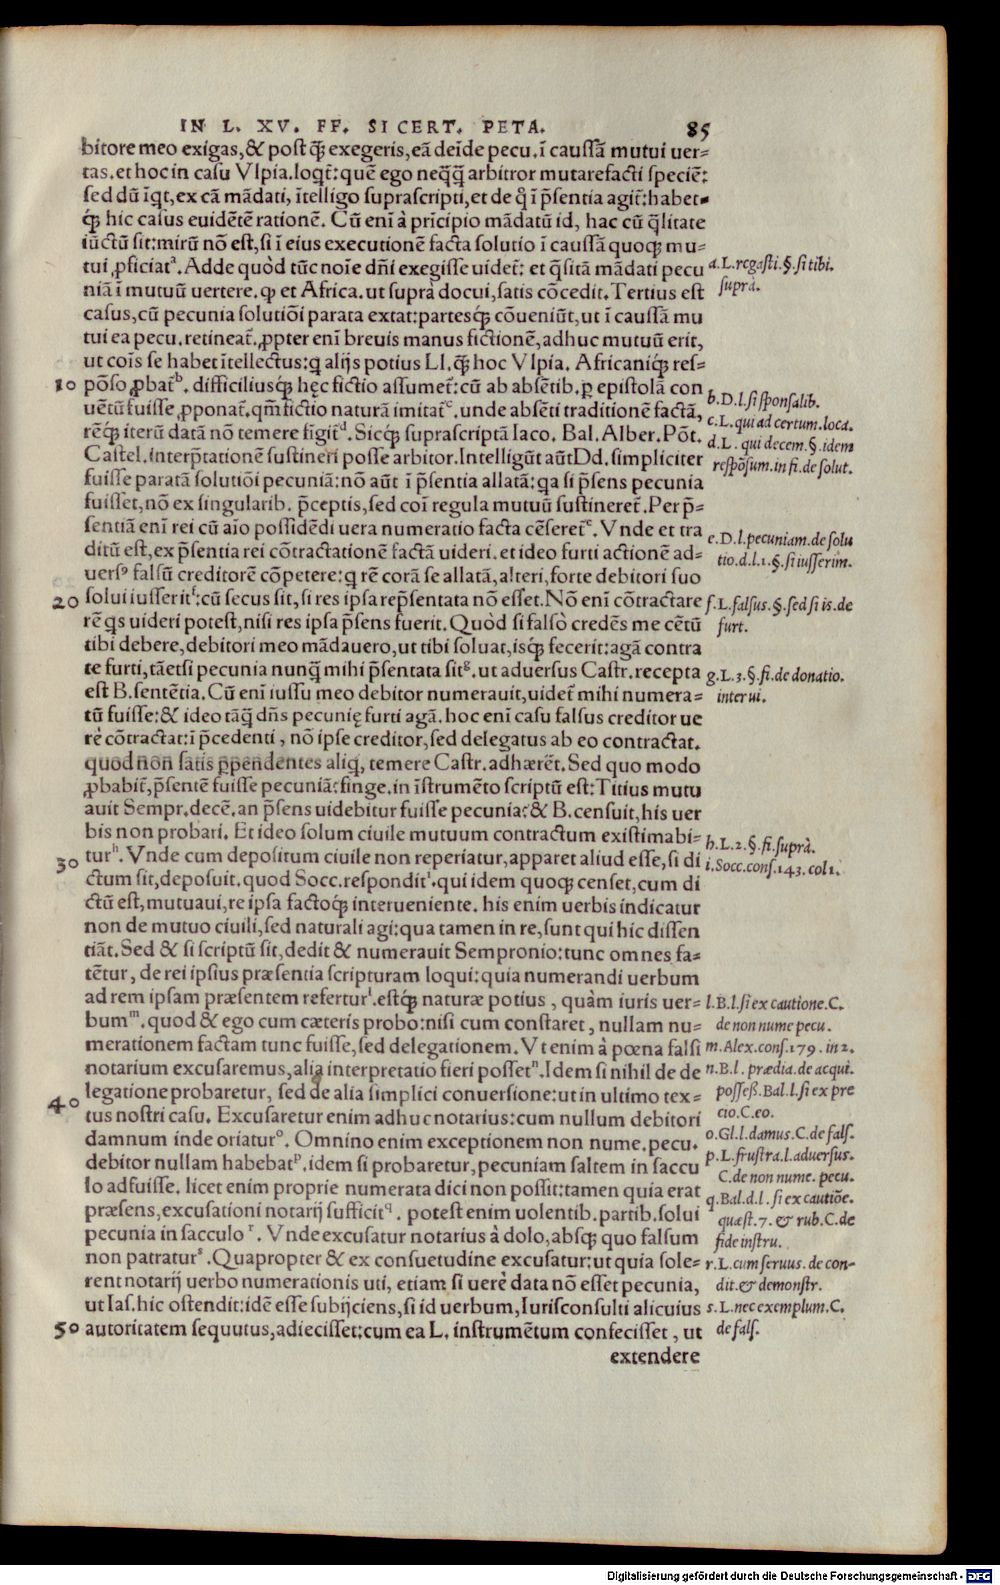 IN L. XV. FF. SI CERT. PETA. 85
bitore meo exigas, & post q̃ exegeris, eã deĩde pecu. ĩ caussã mutui uer=
tas. et hoc in casu Vlpia. loqt̃: quẽ ego neq̃q̃ arbitror mutare facti speciẽ:
sed dũ ĩqt, ex cã mãdati, ĩtelligo suprascripti, et de q̃ ĩ p̃sentia agit̃: habet=
q́; hic casus euidẽtẽ rationẽ. Cũ enĩ à prĩcipio mãdatũ id, hac cũ q̃litate
iũctũ sit: mirũ nõ est, si ĩ eius executionẽ facta solutio ĩ caussã quoq; mu=
tui ꝓficiatᵃ. Adde quòd tũc noĩe dñi exegisse uidet̃: et q̃sitã mãdati pecu
niã ĩ mutuũ uertere. ꝙ et Africa. ut suprà docui, satis cõcedit. Tertius est
casus, cũ pecunia solutiõi parata extat: partesq́; cõueniũt, ut ĩ caussã mu
tui ea pecu. retineat̃. ꝓpter enĩ breuis manus fictionẽ, adhuc mutuũ erit,
ut coĩs se habet ĩtellectus: q alijs potius Ll. q̃ hoc Vlpia. Africaniq́; res=
10 põso ꝓbat̃ᵇ. difficiliusq́; hęc fictio assumet̃: cũ ab absẽtib. ꝑ epistolã con
uẽtũ fuisse ꝓponat̃. qm̃ fictio naturã imitat̃ᶜ. unde absẽti traditionẽ factã,
rẽq́; iterũ datã nõ temere fĩgit̃ᵈ. Sicq́; suprascriptã Iaco. Bal. Alber. Põt.
Castel. interp̃tationẽ sustineri posse arbitor. Intelligũt aũt Dd. simpliciter
fuisse paratã solutiõi pecuniã: nõ aũt ĩ p̃sentia allatã: qa si p̃sens pecunia
fuisset, nõ ex singularib. p̃ceptis, sed coĩ regula mutuũ sustineret̃. Per p̃=
sentiã enĩ rei cũ aĩo possidẽdi uera numeratio facta cẽseret̃ᵉ. Vnde et tra
ditũ est, ex p̃sentia rei cõtractationẽ factã uideri. et ideo furti actionẽ ad=
uersꝰ falsũ creditorẽ cõpetere: q rẽ corã se allatã, alteri, forte debitori suo
20 solui iusseritᶠ: cũ secus sit, si res ipsa rep̃sentata nõ esset. Nõ enĩ cõtractare
rẽ qs uideri potest, nisi res ipsa p̃sens fuerit. Quòd si falsò credẽs me cẽtũ
tibi debere, debitori meo mãdauero, ut tibi soluat, isq́; fecerit: agã contra
te furti, tãetsi pecunia nunq̃ mihi p̃sentata sitᵍ. ut aduersus Castr. recepta
est B. sentẽtia. Cũ enĩ iussu meo debitor numerauit, uidet̃ mihi numera=
tũ fuisse: & ideo tãq̃ dñs pecunię furti agã. hoc enĩ casu falsus creditor ue
rè cõtractat: ĩ p̃cedenti, nõ ipse creditor, sed delegatus ab eo contractat.
quod non satis ꝑpendentes aliq, temere Castr. adhærẽt. Sed quo modo
ꝓbabit̃, p̃sentẽ fuisse pecuniã: finge. in ĩstrumẽto scriptũ est: Titius mutu
auit Sempr. decẽ. an p̃sens uidebitur fuisse pecunia: & B. censuit, his uer
bis non probari. Et ideo solum ciuile mutuum contractum existimabi=
30 turʰ. Vnde cum depositum ciuile non reperiatur, apparet aliud esse, si di
ctum sit, deposuit. quod Socc. responditⁱ. qui idem quoq; censet, cum di
ctũ est, mutuaui, re ipsa factoq́; interueniente. his enim uerbis indicatur
non de mutuo ciuili, sed naturali agi: qua tamen in re, sunt qui hic dissen
tiãt. Sed & si scriptũ sit, dedit & numerauit Sempronio: tunc omnes fa=
tẽtur, de rei ipsius præsentia scripturam loqui: quia numerandi uerbum
ad rem ipsam præsentem referturˡ. estq́; naturæ potius, quàm iuris uer=
bumᵐ. quod & ego cum cæteris probo: nisi cum constaret, nullam nu=
merationem factam tunc fuisse, sed delegationem. Vt enim à pœna falsi
notarium excusaremus, alia interpretatio fieri possetⁿ. Idem si nihil de de
40 legatione probaretur, sed de alia simplici conuersione: ut in ultimo tex=
tus nostri casu. Excusaretur enim adhuc notarius: cum nullum debitori
damnum inde oriaturᵒ. Omnino enim exceptionem non nume. pecu.
debitor nullam habebatᵖ. idem si probaretur, pecuniam saltem in saccu
lo adfuisse. licet enim proprie numerata dici non possit: tamen quia erat
præsens, excusationi notarij sufficit^q. potest enim uolentib. partib. solui
pecunia in sacculo ʳ. Vnde excusatur notarius à dolo, absq; quo falsum
non patraturˢ. Quapropter & ex consuetudine excusatur: ut quia sole=
rent notarij uerbo numerationis uti, etiam si uerè data nõ esset pecunia,
ut Ias. hic ostendit: idẽ esse subijciens, si id uerbum, Iurisconsulti alicuius
50 autoritatem sequutus, adiecisset: cum ea L. instrumẽtum confecisset, ut
extendere
a. L. rogasti. §. si tibi.
suprà.
b. D. l. si sponsalib.
c. L. qui ad certum. loca.
d. L. qui decem. §. idem
respõsum. in fi. de solut.
e. D. l. pecuniam. de solu
tio. d. l. 1. §. si iusserim.
f. L. falsus. §. sed si is. de
furt.
g. L. 3. §. fi. de donatio.
inter ui.
h. L. 2. §. fi. suprà.
i. Socc. cons. 143. col 1.
l. B. l. si ex cautione. C.
de non nume pecu.
m. Alex. cons. 179. in 2.
n. B. l. prædia. de acqui.
posseß. Bal. l. si ex pre
cio. C. eo.
o. Gl. l. damus. C. de fals.
p. L. frustra. l. aduersus.
C. de non nume. pecu.
q. Bal. d. l. si ex cautiõe.
quæst. 7. & rub. C. de
fide instru.
r. L. cum seruus. de con=
dit. & demonstr.
s. L. nec exemplum. C.
de fals.
Digitalisierung gefördert durch die Deutsche Forschungsgemeinschaft - DFG